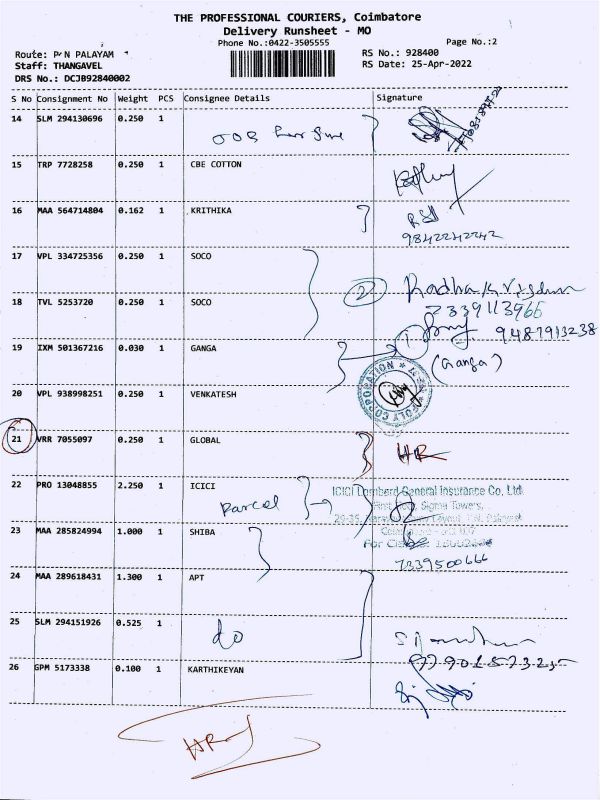 THE PROFESSIONAL COURIERS, Coimbatore
Delivery Runsheet - MO
Phone No.:0422-3505555
Page No.:2
Route: P N PALAYAM
RS No.: 928400
Staff: THANGAVEL
RS Date: 25-Apr-2022
DRS No.: DCJ092840002
S No Consignment No Weight PCS Consignee Details Signature
14 SLM 294130696 0.250 1
15 TRP 7728258 0.250 1 CBE COTTON
16 MAA 564714804 0.162 1 KRITHIKA
9842242242
17 VPL 334725356 0.250 1 SOCO
2 Radhakrishnan
7339113966
18 TVL 5253720 0.250 1 SOCO
1 9487913238
19 IXM 501367216 0.030 1 GANGA
(Ganga)
20 VPL 938998251 0.250 1 VENKATESH
21 VRR 7055097 0.250 1 GLOBAL
HR
22 PRO 13048855 2.250 1 ICICI
Parcel
ICICI Lombard General Insurance Co. Ltd.
First Floor, Sigma Towers,
23 MAA 285824994 1.000 1 SHIBA
7339500666
24 MAA 289618431 1.300 1 APT
25 SLM 294151926 0.525 1
do
26 GPM 5173338 0.100 1 KARTHIKEYAN